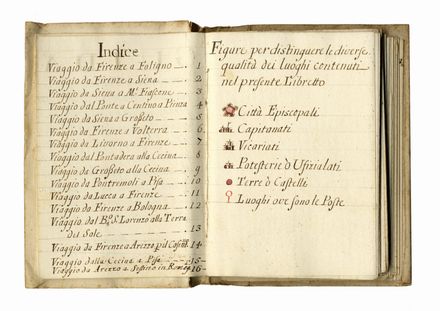 Indice
Viaggio da Firenze a Foligno 1
Viaggio da Firenze a Siena 2
Viaggio da Siena a M. Fiascone 3
Viaggio dal Ponte a Centino a Pienza 4
Viaggio da Siena a Groseto 5
Viaggio da Firenze a Volterra 6
Viaggio da Livorno a Firenze 7
Viaggio da Pontadera alla Cecina 8
Viaggio da Groseto alla Cecina 9
Viaggio da Pontremoli a Pisa 10
Viaggio da Lucca a Firenze 11
Viaggio da Firenze a Bologna 12
Viaggio dal B. S. Lorenzo alla Terra
del Sole 13
Viaggio da Firenze a Arezzo 14
Viaggio dalla Cecina a Pisa 15
Viaggio da Arezzo a Sestino in 16
Figure per distinguere le diverse
qualità dei luoghi contenuti
nel presente Libretto
Città Episcopali
Capitanati
Vicariati
Potesterie ò Ufizialati
Terre ò Castelli
Luoghi ove sono le Poste